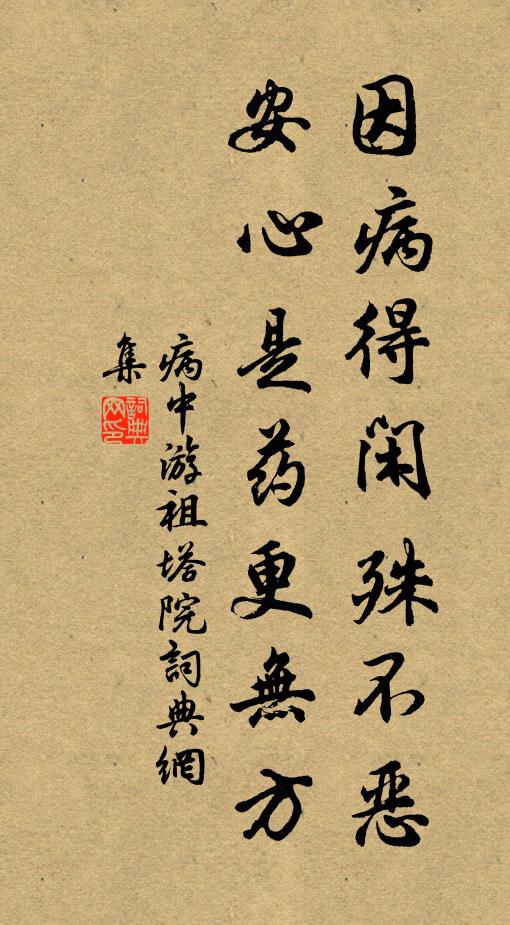 因病得闲殊不恶
安心是药更無方
病中游祖塔院詞典網
集
詞典
网印